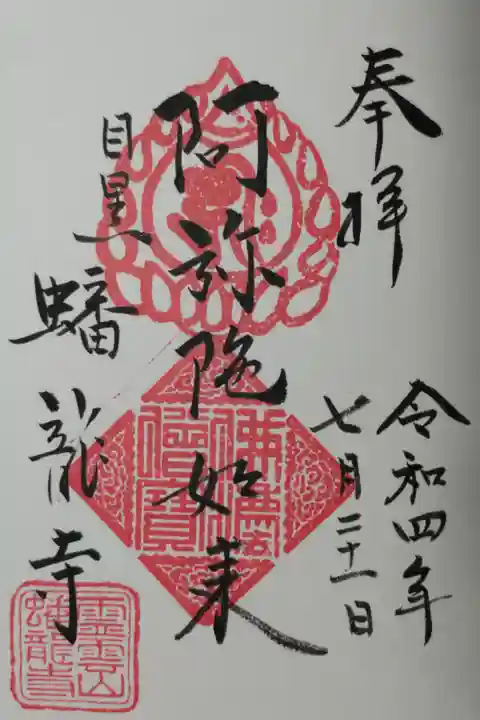 奉拝
令和四年
七月二十一日
阿弥陀如来
目黒
蟠龍寺
佛法僧寶
霊雲山
蟠龍寺